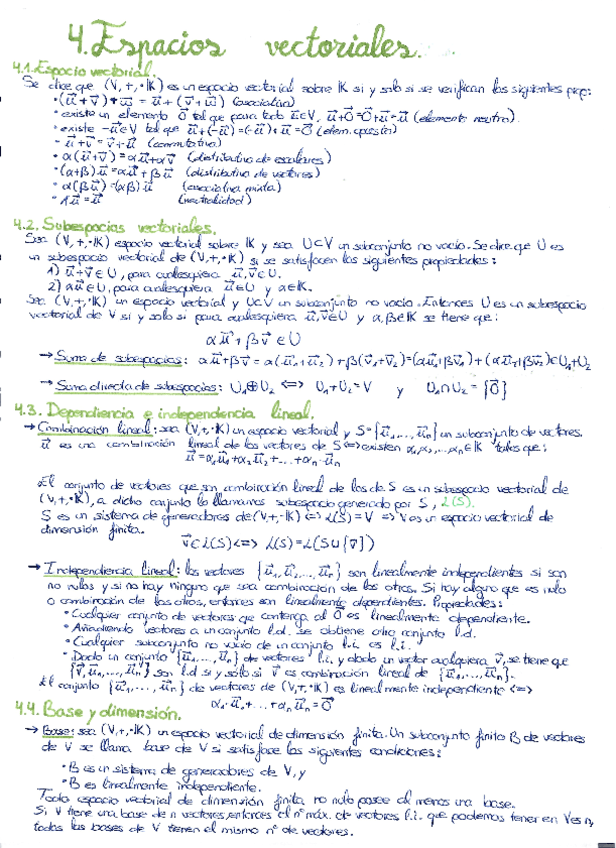 4. Espacios vectoriales.
4.1. Espacio vectorial.
Se dice que (V, +, ·K) es un espacio vectorial sobre K si y solo si se verifican las siguientes prop:
· (u⃗ + v⃗) + w⃗ = u⃗ + (v⃗ + w⃗) (asociativa)
· existe un elemento 0⃗ tal que para todo u⃗∈V, u⃗+0⃗=0⃗+u⃗=u⃗ (elemento neutro).
· existe -u⃗∈V tal que u⃗+(-u⃗)=(-u⃗)+u⃗=0⃗ (elem. opuesto)
- u⃗+v⃗=v⃗+u⃗ (conmutativa)
· α(u⃗+v⃗)=αu⃗+αv⃗ (distributiva de escalares)
· (α+β)·u⃗=αu⃗+βu⃗ (distributiva de vectores)
· α(βu⃗)=(αβ)u⃗ (asociativa mixta)
· 1u⃗=u⃗ (neutralidad)
4.2. Subespacios vectoriales.
Sea (V, +, ·K) espacio vectorial sobre K y sea U⊂V un subconjunto no vacío. Se dice que U es
un subespacio vectorial de (V, +, ·K) si se satisfacen las siguientes propiedades:
1) u⃗+v⃗∈U, para cualesquiera u⃗,v⃗∈U.
2) αu⃗∈U, para cualesquiera u⃗∈U y α∈K.
Sea (V, +, ·K) un espacio vectorial y U⊂V un subconjunto no vacío. Entonces U es un subespacio
vectorial de V si y solo si para cualesquiera u⃗,v⃗∈U y α,β∈K se tiene que:
αu⃗+βv⃗∈U
→ Suma de subespacios: αu⃗+βv⃗=α(u⃗₁+u⃗₂)+β(v⃗₁+v⃗₂)=(αu⃗₁+βv⃗₁)+(αu⃗₂+βv⃗₂)∈U₁+U₂
→ Suma directa de subespacios: U₁⊕U₂ <=> U₁+U₂=V y U₁∩U₂={0⃗}
4.3. Dependencia e independencia lineal.
→ Combinación lineal: sea (V, +, ·K) un espacio vectorial y S={u⃗₁,..., u⃗n} un subconjunto de vectores.
u⃗ es una combinación lineal de los vectores de S <=> existen α₁,α₂,...,αn∈K tales que:
u⃗=α₁u⃗₁+α₂u⃗₂+...+αn·u⃗n
El conjunto de vectores que son combinación lineal de los de S es un subespacio vectorial de
(V, +, ·K), a dicho conjunto lo llamamos subespacio generado por S, L(S).
S es un sistema de generadores de (V, +, ·K) <=> L(S)=V => V es un espacio vectorial de
dimensión finita.
v⃗∈L(S) <=> L(S)=L(S∪{v⃗})
→ Independencia lineal: los vectores {u⃗₁, u⃗₂,..., u⃗n} son linealmente independientes si son
no nulos y si no hay ninguno que sea combinación de los otros. Si hay alguno que es nulo
o combinación de los otros, entonces son linealmente dependientes. Propiedades:
· Cualquier conjunto de vectores que contenga al 0⃗ es linealmente dependiente.
· Añadiendo vectores a un conjunto l.d. se obtiene otro conjunto l.d.
· Cualquier subconjunto no vacío de un conjunto l.i. es l.i.
· Dado un conjunto {u⃗₁,..., u⃗n} de vectores l.i. y dado un vector cualquiera v⃗, se tiene que
{v⃗, u⃗₁,..., u⃗n} son l.d si y solo si v⃗ es combinación lineal de {u⃗₁,..., u⃗n}.
El conjunto {u⃗₁,..., u⃗n} de vectores de (V, +, ·K) es linealmente independiente <=>
α₁·u⃗₁+...+αnu⃗n=0⃗
4.4. Base y dimensión.
→ Base: sea (V, +, ·K) un espacio vectorial de dimensión finita. Un subconjunto finito B de vectores
de V se llama base de V si satisface las siguientes condiciones:
· B es un sistema de generadores de V, y
· B es linealmente independiente.
Todo espacio vectorial de dimensión finita no nulo posee al menos una base.
Si V tiene una base de n vectores, entonces el nº máx. de vectores l.i. que podemos tener en V es n,
todas las bases de V tienen el mismo nº de vectores.